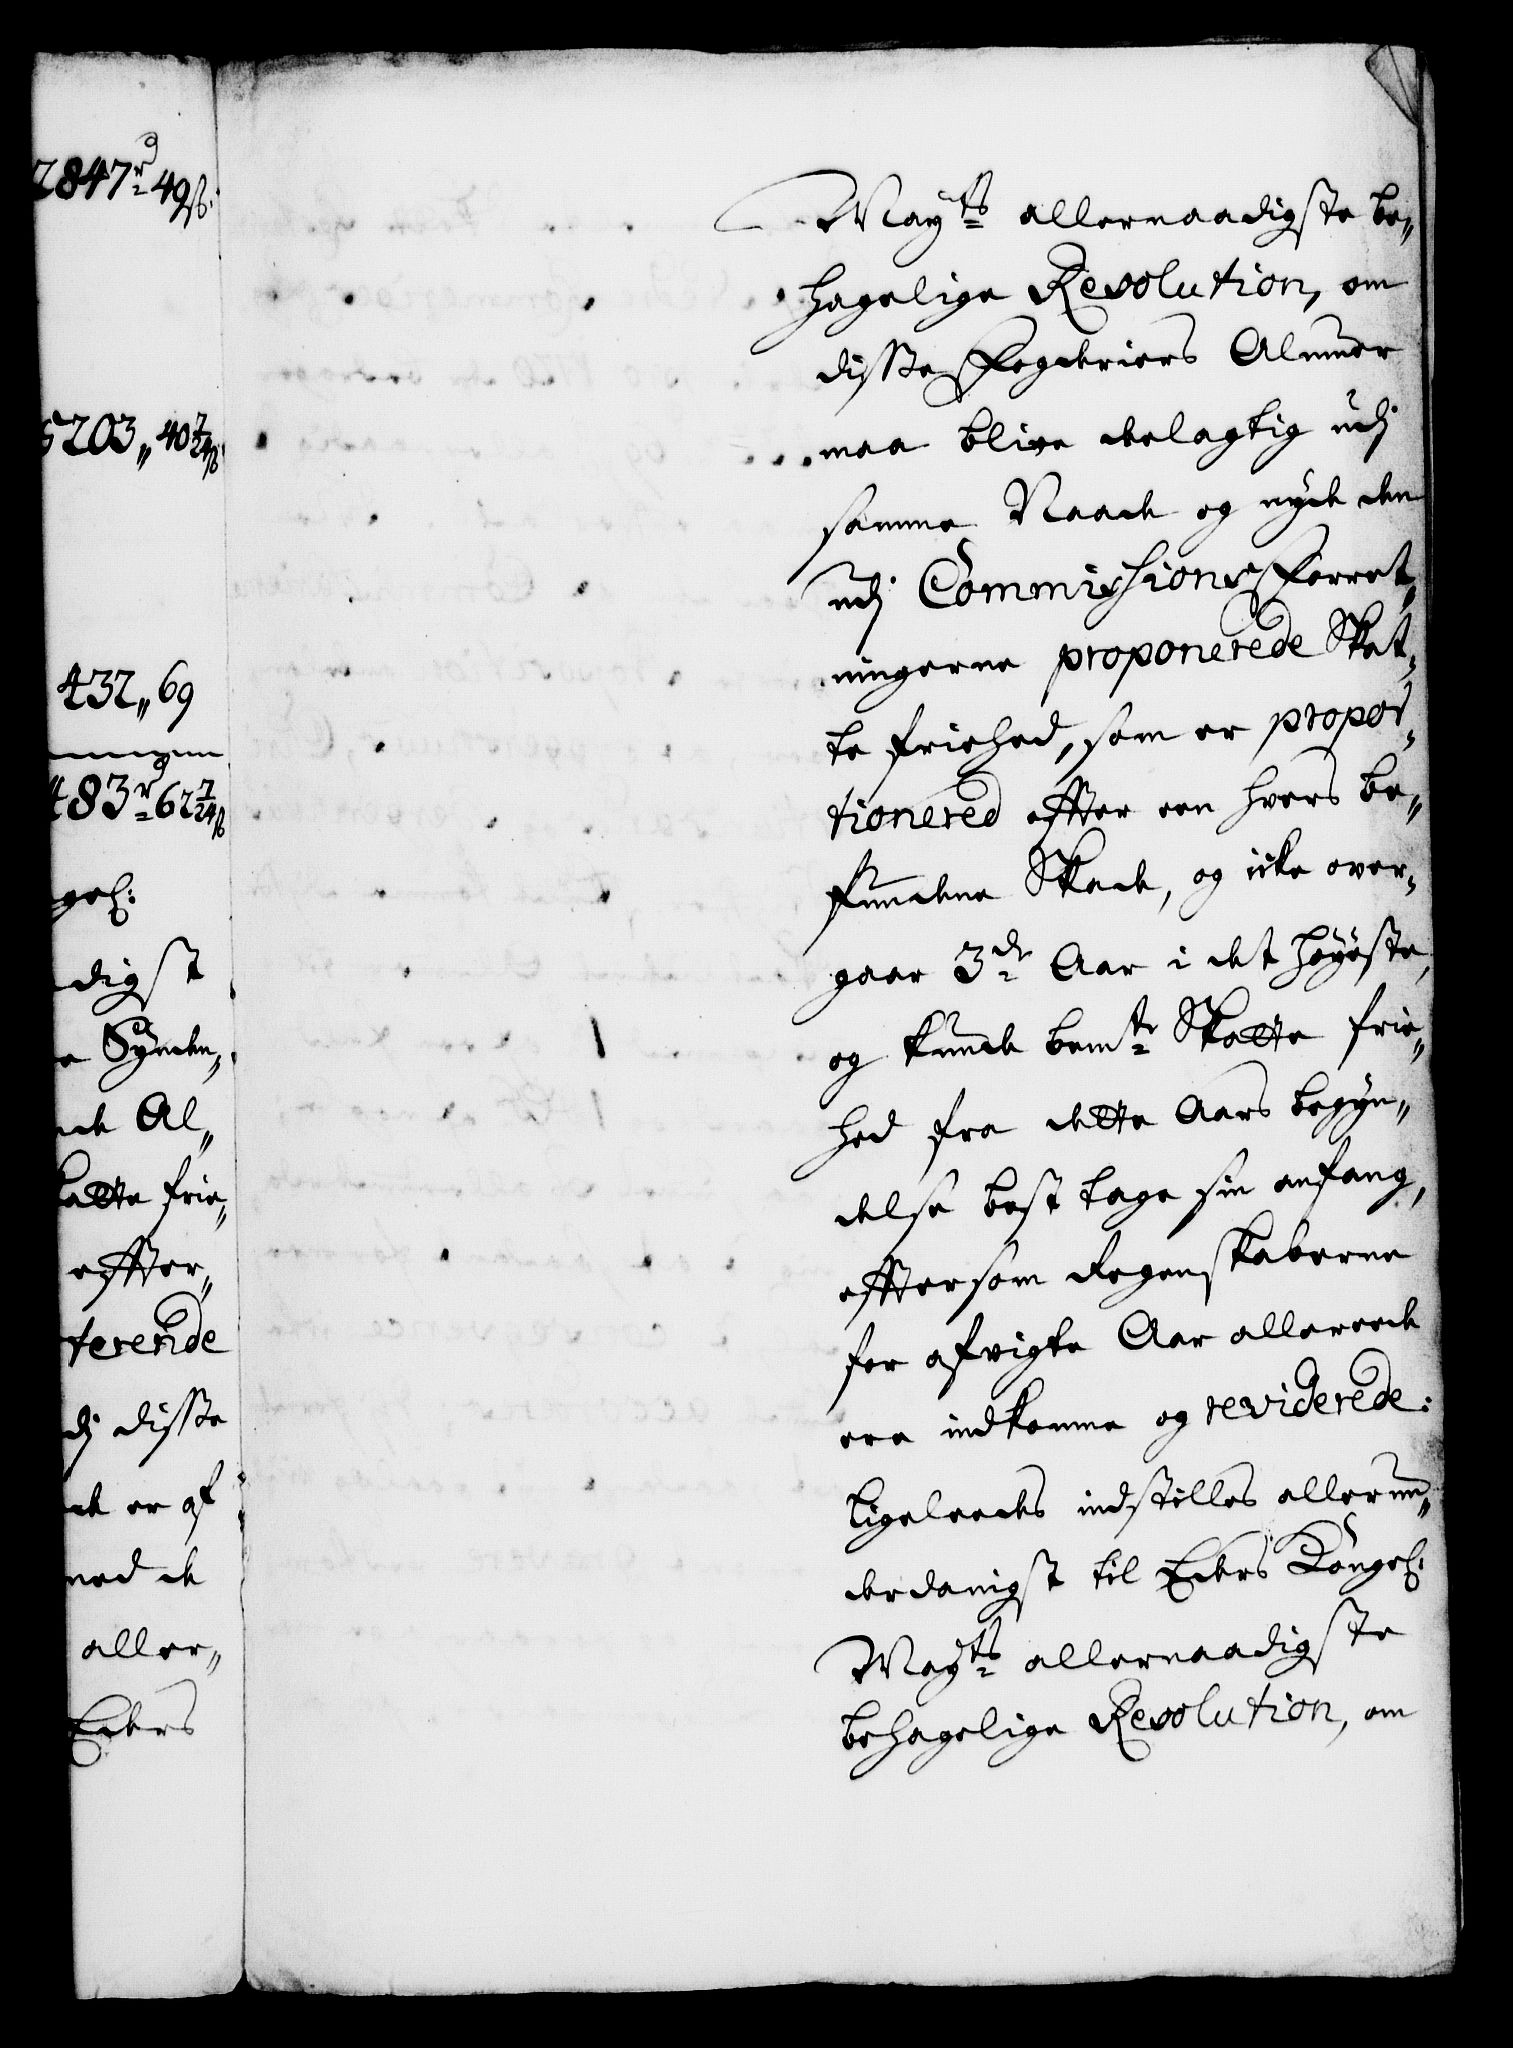 2847rd 49ß.
5203,, 40 7/24ß
432,, 69
483r 62 7/24ß
gel:
digst
e Synden,,
de Al,,
katte frie,,
effter,,
terende
di disse
de er af
med de
aller,,
Eders
Mayts allernaadigste be,,
hagelige Resolution, om
disse Fogderiers Almuer
maa blive delagtig udj
samme Naade og nyde den
udj Commissions Forret,,
ningerne proponerede Skat,,
te friehed, som er propor,,
tionered effter een hvers be,,
fundene Skade, og icke over,,
gaar 3de Aar i det høyeste,
og kunde bemte Skatte frie,,
hed fra dette Aars begyn,,
delse best tage sin anfang,
efftersom Regenskaberne
for afvigte Aar allereede
ere indkomne og reviderede:
ligeleedes indstilles allerun,,
derdanigst til Eders Kongel:
Mayts allernaadigste
behagelige Resolution, om